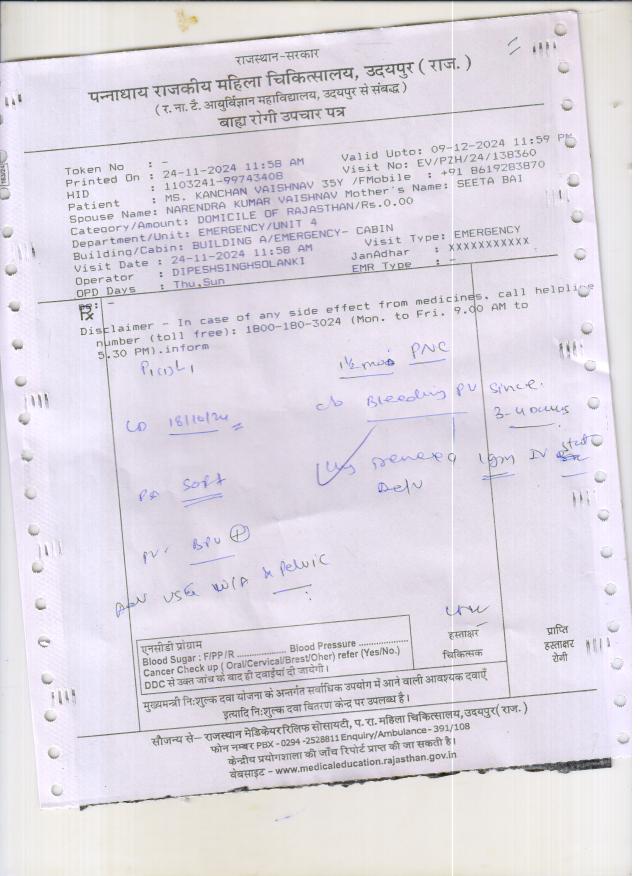 राजस्थान-सरकार
पन्नाधाय राजकीय महिला चिकित्सालय, उदयपुर ( राज. )
( र. ना. टै. आयुर्विज्ञान महाविद्यालय, उदयपुर से संबद्ध )
बाह्य रोगी उपचार पत्र
Token No : -
Printed On : 24-11-2024 11:58 AM Valid Upto: 09-12-2024 11:59 PM
HID : 1103241-99743408 Visit No: EV/PZH/24/138360
Patient : MS. KANCHAN VAISHNAV 35Y /FMobile : +91 8619283870
Spouse Name: NARENDRA KUMAR VAISHNAV Mother's Name: SEETA BAI
Category/Amount: DOMICILE OF RAJASTHAN/Rs.0.00
Department/Unit: EMERGENCY/UNIT 4
Building/Cabin: BUILDING A/EMERGENCY- CABIN
Visit Date : 24-11-2024 11:58 AM Visit Type: EMERGENCY
Operator : DIPESHSINGHSOLANKI JanAadhar : XXXXXXXXXXX
OPD Days : Thu,Sun EMR Type : -
Disclaimer - In case of any side effect from medicines, call helpline
number (toll free): 1800-180-3024 (Mon. to Fri. 9.00 AM to
5.30 PM).inform
P1(1)L1 1½ PNC
LD 18/10/24 c/o Bleeding PV since
3-4 days
PA soft 1gm IV stat
PV BPV +
Adv USG W/A & Pelvic
एनसीडी प्रोग्राम
Blood Sugar : F/PP/R .................. Blood Pressure ..................
Cancer Check up ( Oral/Cervical/Brest/Oher) refer (Yes/No.)
DDC से उक्त जांच के बाद ही दवाईयां दी जायेगी।
हस्ताक्षर
चिकित्सक
प्राप्ति
हस्ताक्षर
रोगी
मुख्यमंत्री निःशुल्क दवा योजना के अन्तर्गत सर्वाधिक उपयोग में आने वाली आवश्यक दवाएँ
इत्यादि निःशुल्क दवा वितरण केन्द्र पर उपलब्ध है।
सौजन्य से– राजस्थान मेडिकेयर रिलिफ सोसायटी, प. रा. महिला चिकित्सालय, उदयपुर( राज. )
फोन नम्बर PBX - 0294 -2528811 Enquiry/Ambulance - 391/108
केन्द्रीय प्रयोगशाला की जाँच रिपोर्ट प्राप्त की जा सकती है।
वेबसाइट - www.medicaleducation.rajasthan.gov.in